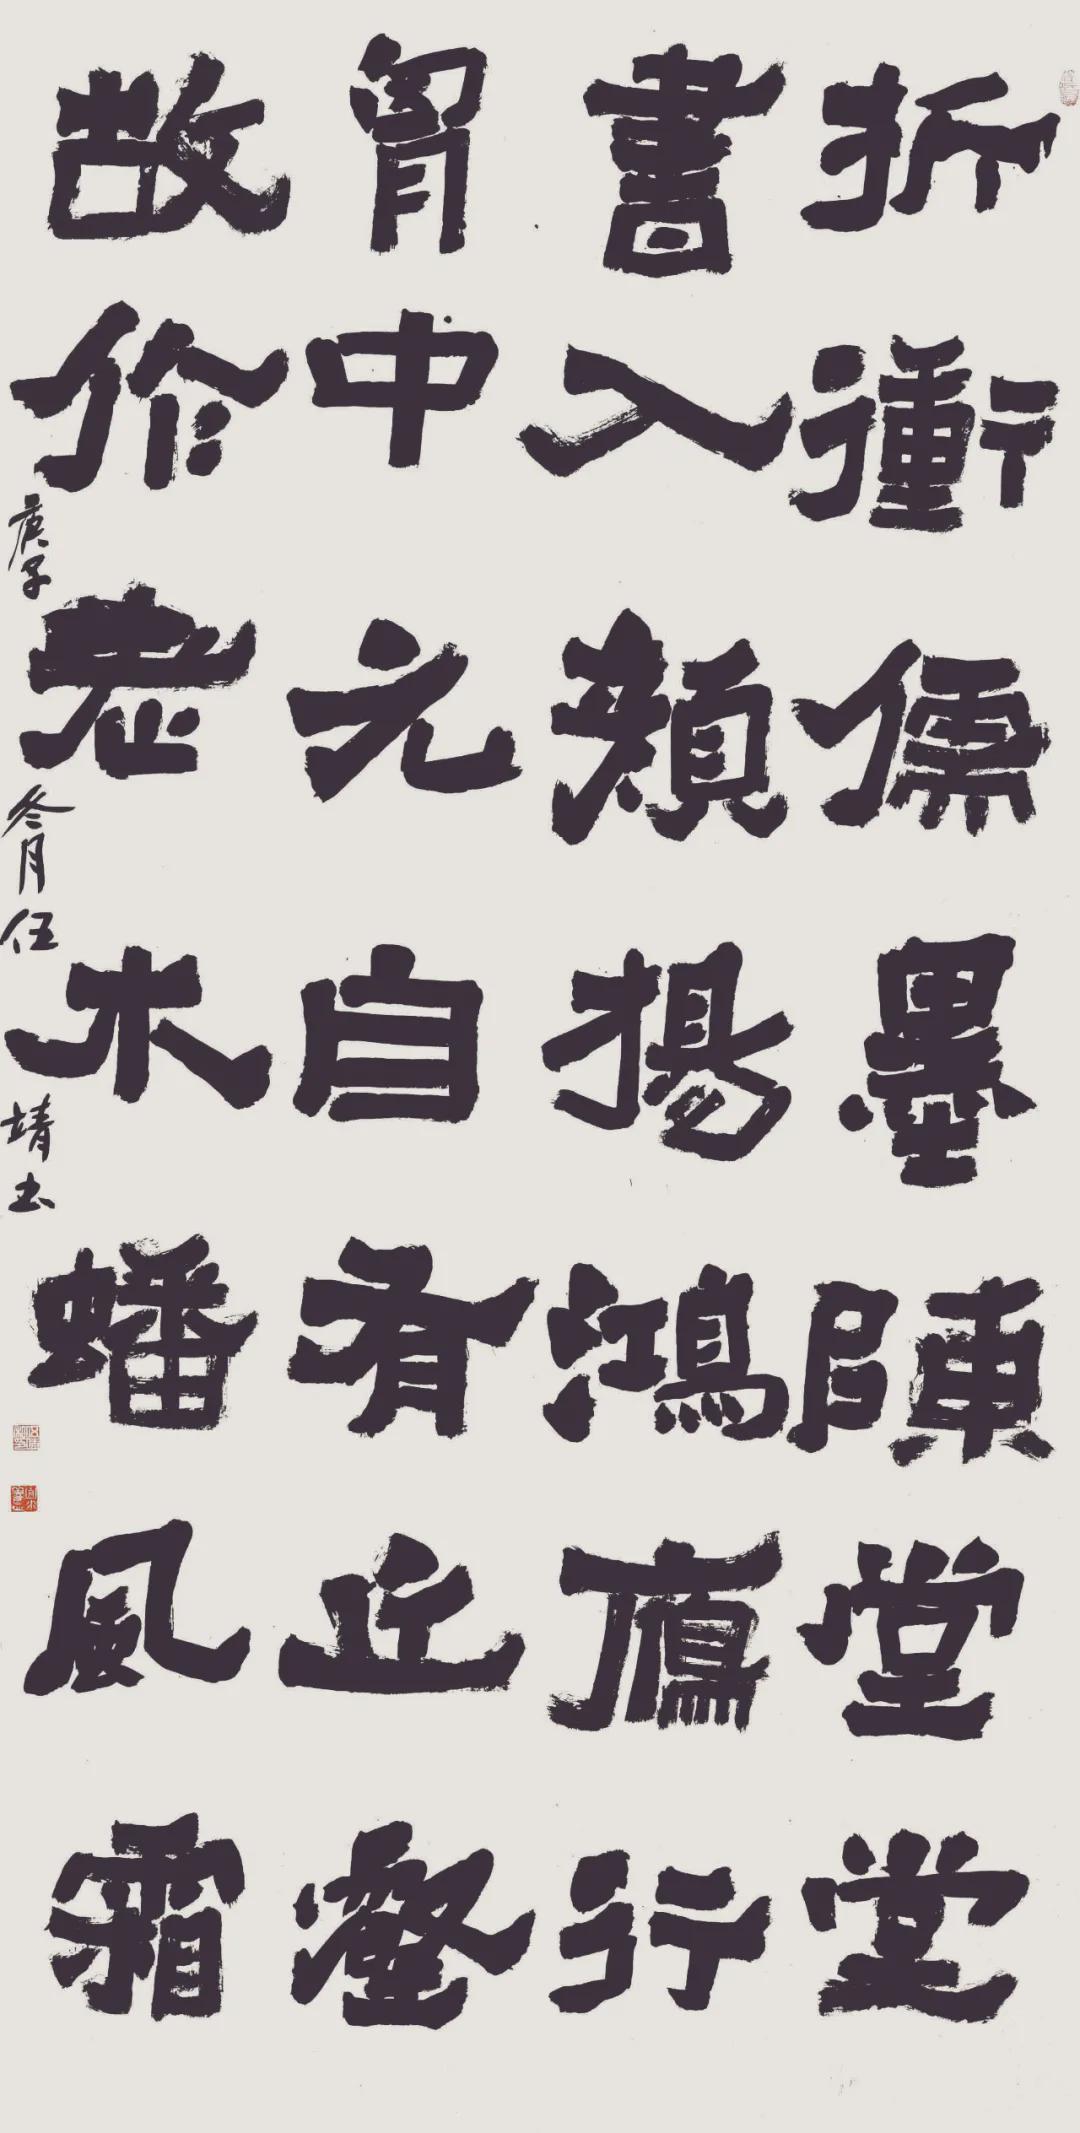 折衝儒墨陳堂堂
書入顏揚鴻鴈行
胷中元自有丘壑
故作老木蟠風霜
庚子冬月伍靖书